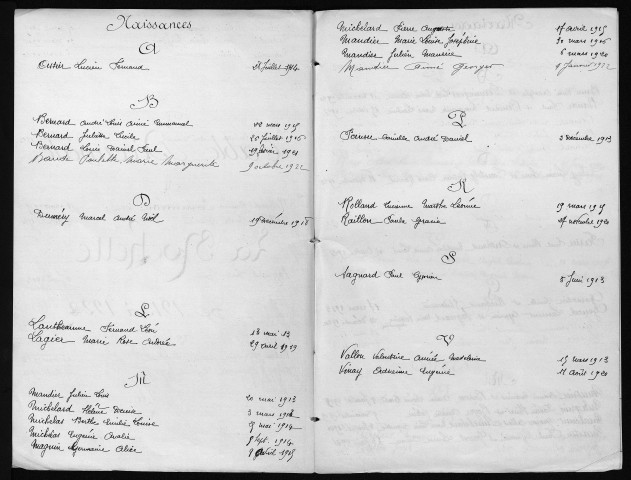 Naissances
A
Lucien Fernand Juillet 1914
B
Bernard André Louis Aimé Emmanuel 22 mars 1915
Bernard Juliette Cécile 20 juillet 1916
Bernard Louis Daniel Paul 19 février 1921
Paulette Marie Marguerite 9 octobre 1922
D
Marcel André Noël 19 décembre 1918
L
Fernand Léon 13 mai 13
Lagier Marie Rose Andrée 29 avril 1913
M
Mandier Julien Louis 20 mai 1913
Michelard Hélène Denise 3 mars 1914
Michelas Berthe Emilie Louise 9 mai 1914
Michelas Eugénie Amalia 9 Sept. 1914
Magnin Germaine Alice 9 avril 1915
Michelard Pierre Auguste 17 avril 1915
Mandier Marie Louise Joséphine 30 mars 1916
Mandier Julien Maurice 6 mars 1920
Mandier Aimé Georges 9 Janvier 1922
P
Camille André Daniel 2 décembre 1913
R
Rolland Suzanne Marthe Léonie 19 mars 1915
Raillon Paule Gracie 27 novembre 1920
S
Sagnard Paul Cyprien 8 Juin 1913
V
Vallon Valentine Aimée Madeleine 15 mars 1913
Vinay Eugénie 11 août 1920